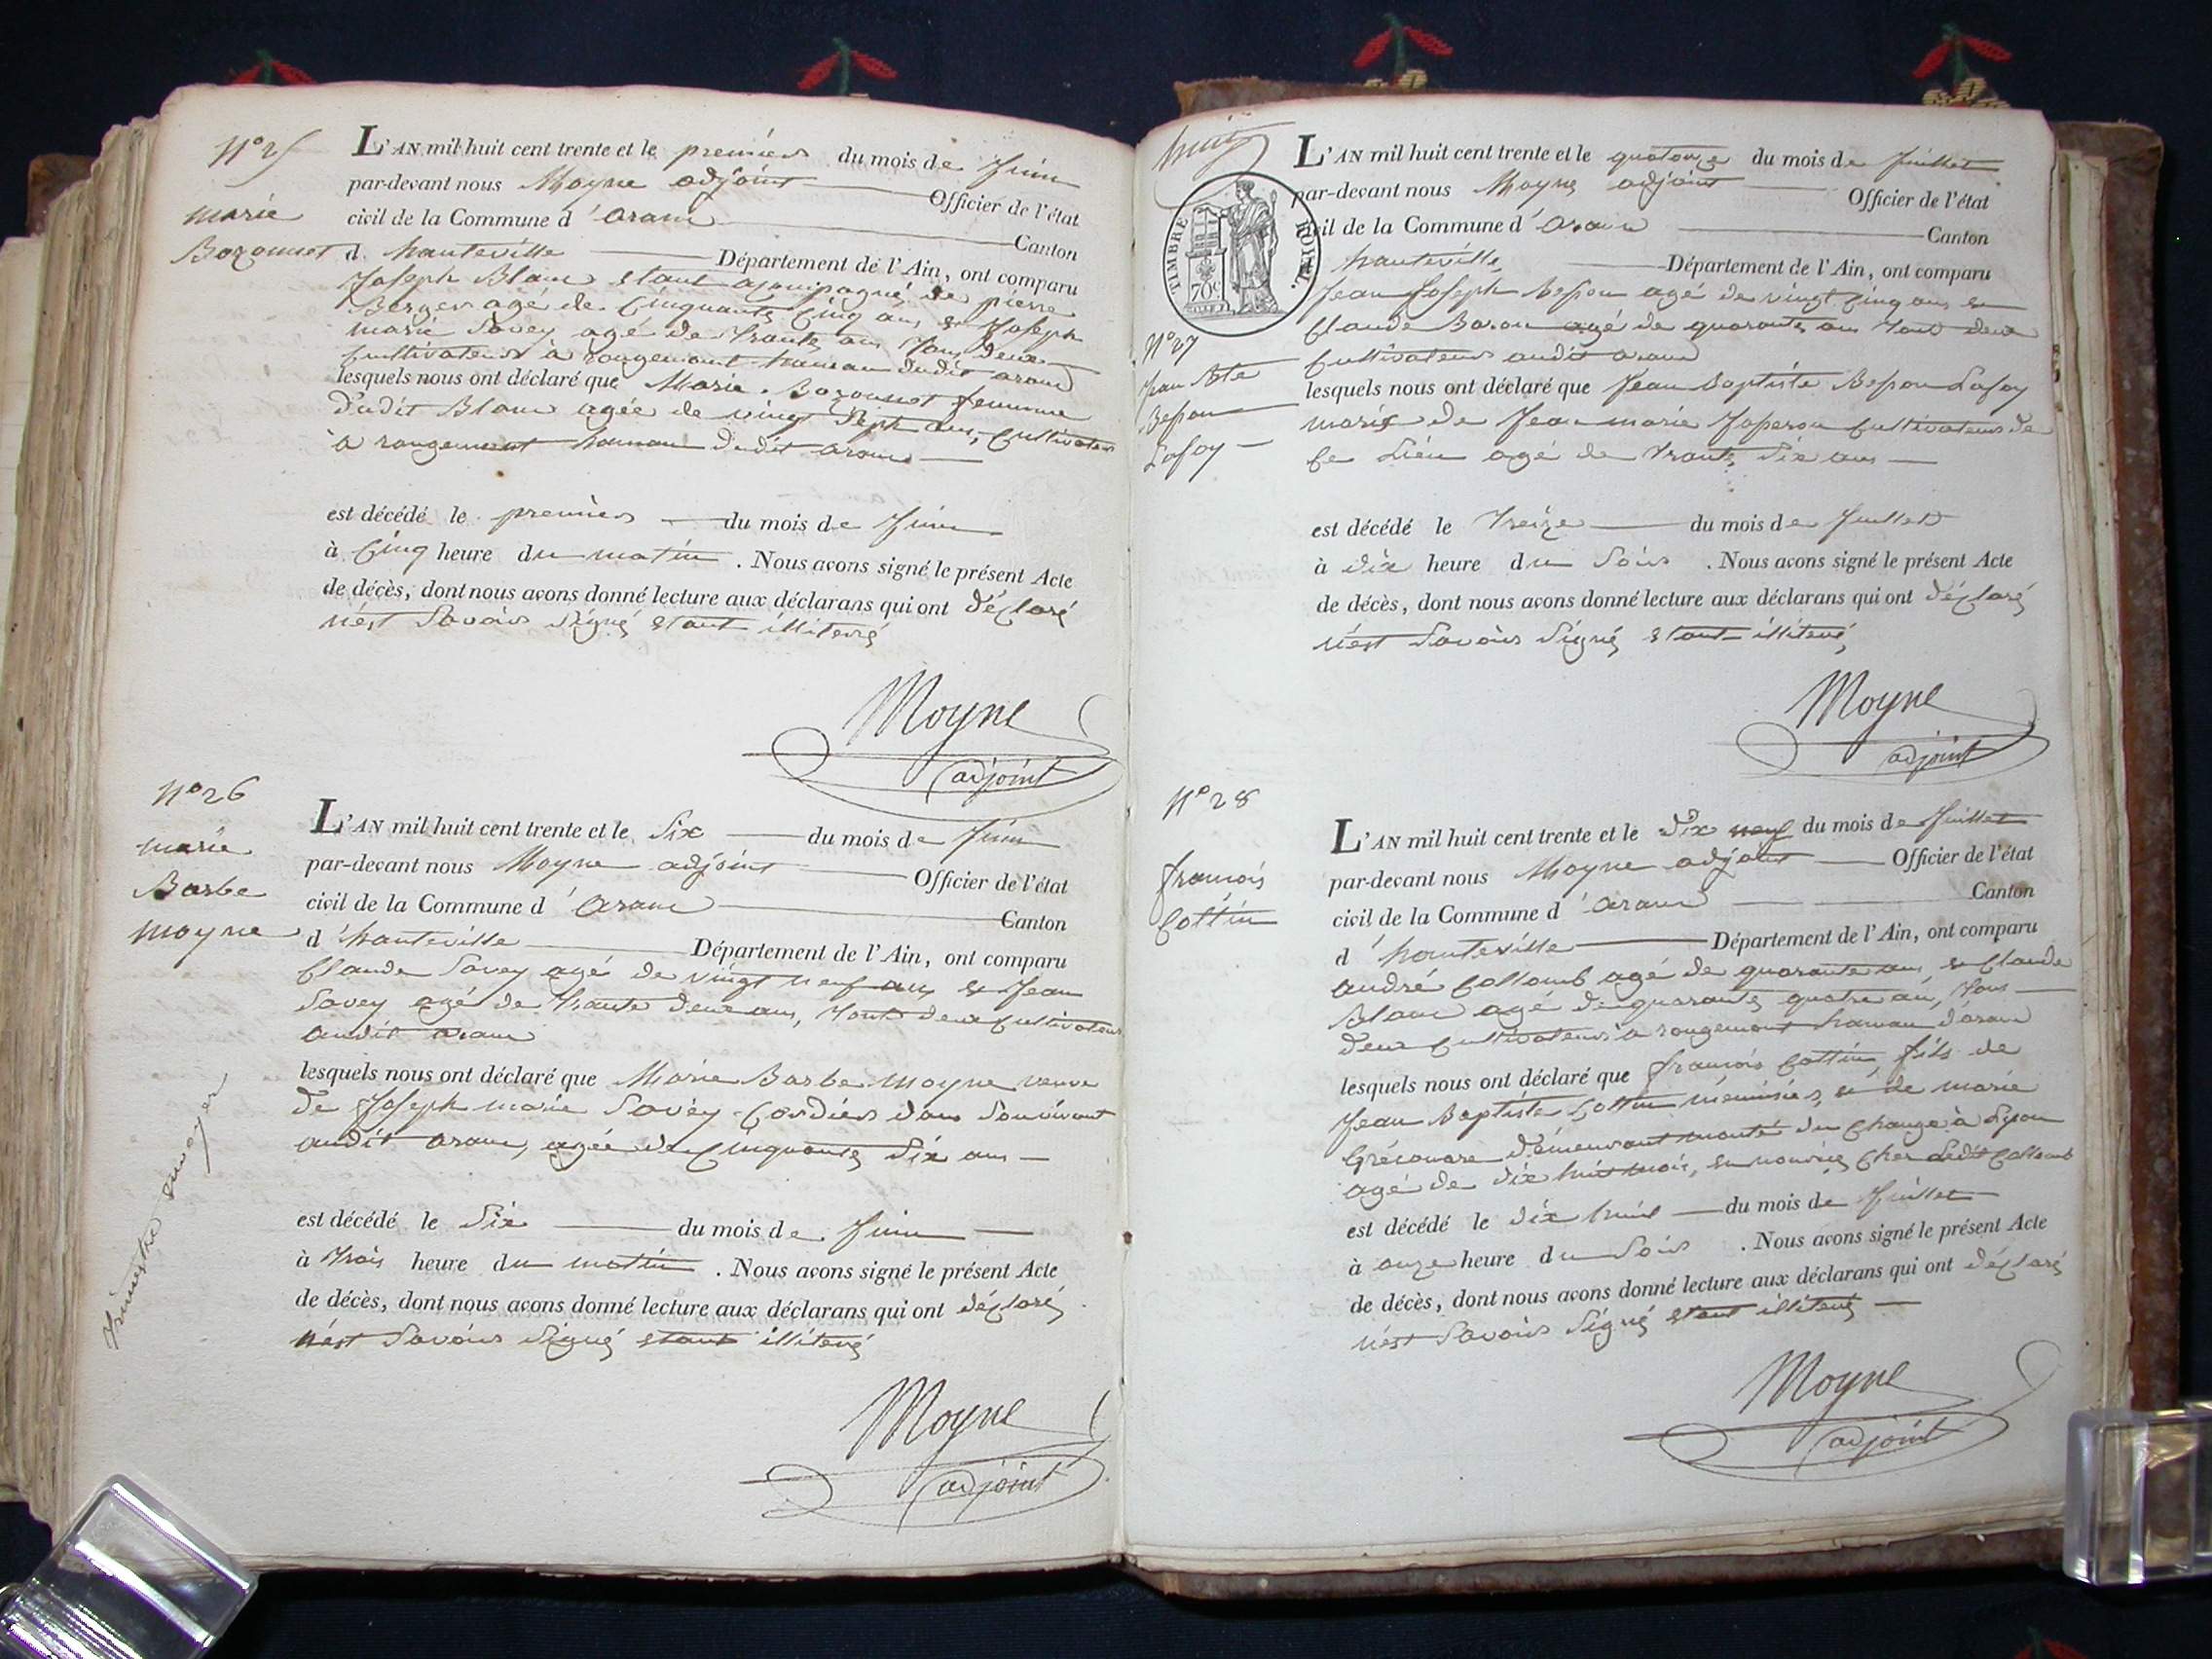 N° 25
marie
Bozonnet
L'AN mil huit cent trente et le premiers du mois de Juin
par-devant nous Moyne adjoint Officier de l'état
civil de la Commune d' aranc Canton
d. hauteville Département de l'Ain, ont comparu
Joseph Blanc etant acompagné de pierre
Berger agé de Cinquante Cinq ans et Joseph
marie Savey agé de trante ans tous deux
Cultivateurs à rougemont hameau dudit aranc
lesquels nous ont déclaré que Marie Bozonnet femme
dudit Blanc agée de vingt Sept ans, Cultivateur
a rougemont hameau dudit aranc
est décédé le premiers du mois de Juin
à Cinq heure du matin . Nous avons signé le présent Acte
de décès, dont nous avons donné lecture aux déclarans qui ont déclaré
n'est Savoir Signé etant illiteré
Moyne
adjoint
N° 26
marie
Barbe
moyne
L'AN mil huit cent trente et le Six du mois de Juin
par-devant nous Moyne adjoint Officier de l'état
civil de la Commune d' aranc Canton
d' hauteville Département de l'Ain, ont comparu
Claude Savey agé de vingt neuf ans et Jean
Savey agé de trante deux ans, tout deux Cultivateurs
audit aranc
lesquels nous ont déclaré que Marie Barbe moyne veuve
de Joseph marie Savey Cordier dans Son vivant
audit aranc, agée de Cinquante Six ans
est décédé le Six du mois de Juin
à trois heure du matin . Nous avons signé le présent Acte
de décès, dont nous avons donné lecture aux déclarans qui ont déclaré
n'est Savoir Signé etant illiteré
Moyne
adjoint
trimestre envoyer
huit
TIMBRE ROYAL.
70c
L'AN mil huit cent trente et le quatorze du mois de Juillet
par-devant nous Moyne adjoint Officier de l'état
civil de la Commune d' aranc Canton
hauteville Département de l'Ain, ont comparu
Jean Joseph Besson agé de vingt Cinq ans et
Claude Baron agé de quarante ans tout deux
Cultivateurs audit aranc
N° 27
Jean Bte
Besson
Lafoy
lesquels nous ont déclaré que Jean Baptiste Besson Lafoy
marié de Jeanmarie Japeron Cultivateur de
Ce Lieu agé de trante Six ans
est décédé le treize du mois de Juillet
à dix heure du Soir . Nous avons signé le présent Acte
de décès, dont nous avons donné lecture aux déclarans qui ont déclaré
n'est Savoir Signé etant illiteré
Moyne
adjoint
N° 28
francois
Cottin
L'AN mil huit cent trente et le Dix neuf du mois de Juillet
par-devant nous Moyne adjoint Officier de l'état
civil de la Commune d' aranc Canton
d' hauteville Département de l'Ain, ont comparu
andré Collomb agé de quarante ans, et Claude
Blanc agé de quarante quatre an, tous
deux Cultivateurs a rougemont hameau daranc
lesquels nous ont déclaré que francois Cottin fils de
Jean Baptiste Cottin ménuisier, et de marie
démeurant monté du Change à Lyon
agé de dix huit mois, en nourrice Cher Ledit Collomb
est décédé le dix huit du mois de Juillet
à onze heure du Soir . Nous avons signé le présent Acte
de décès, dont nous avons donné lecture aux déclarans qui ont déclaré
n'est Savoir Signé etant illiteré
Moyne
adjoint